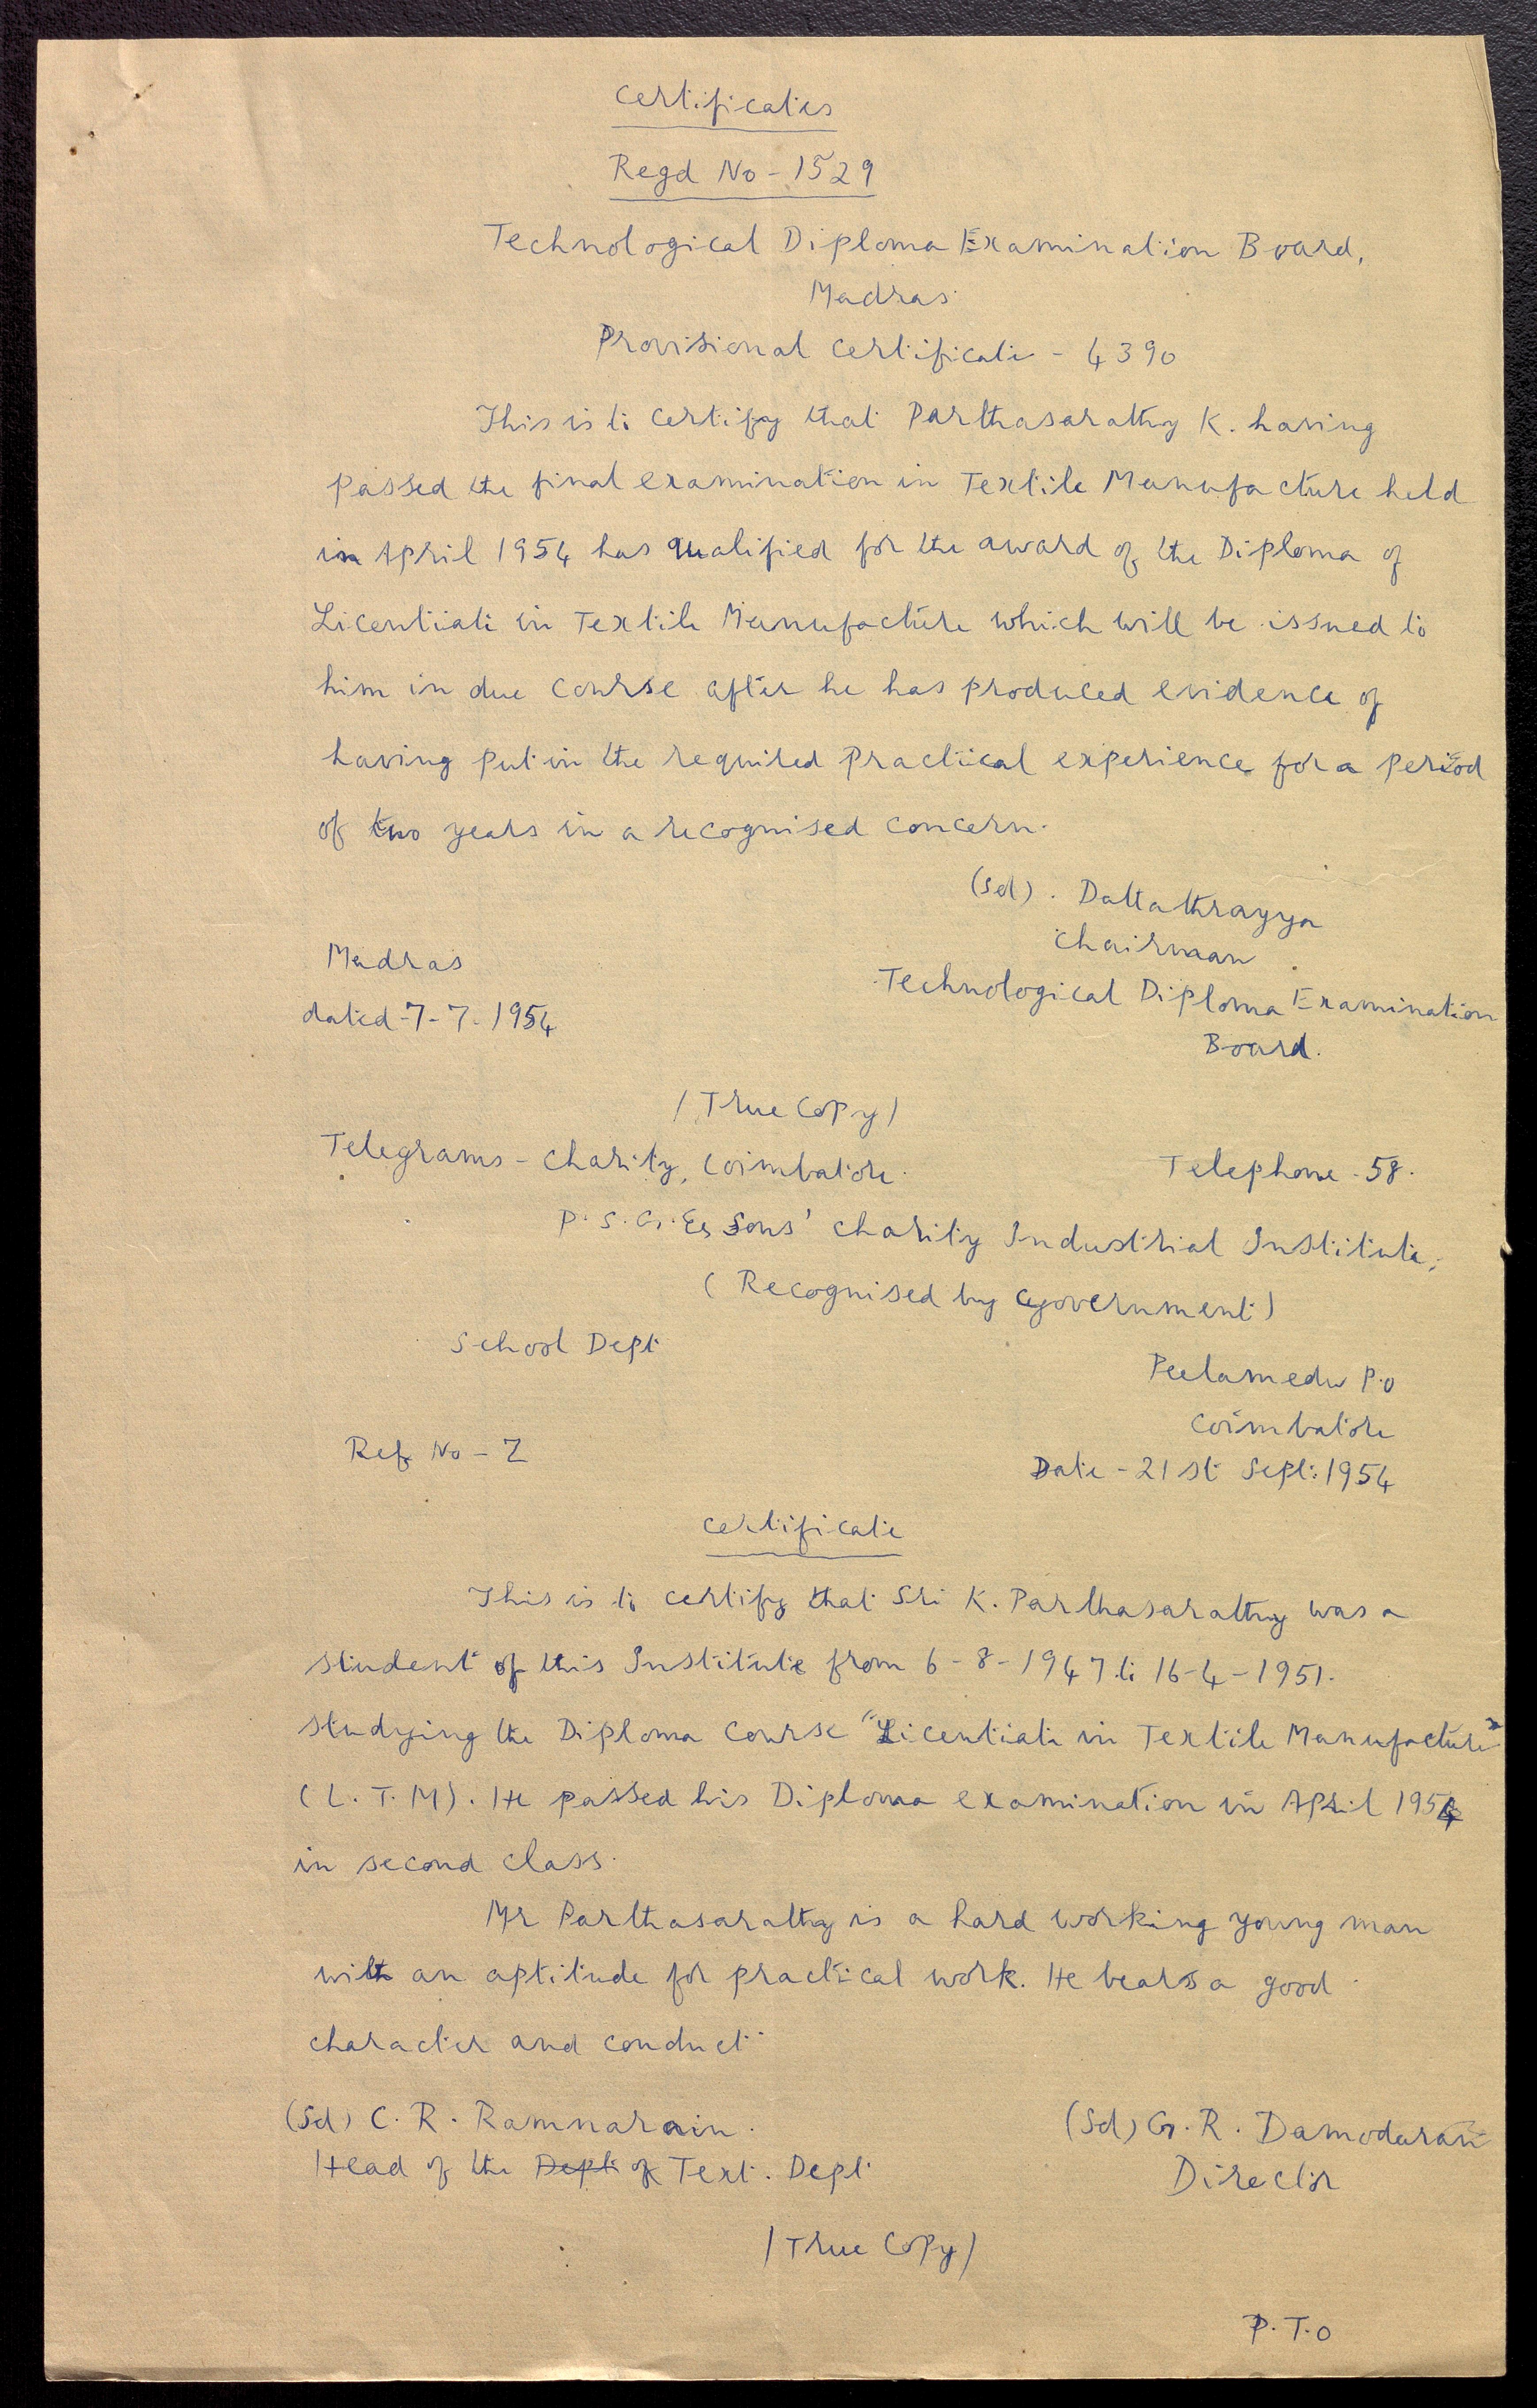 Certificates
Regd No - 1529
Technological Diploma Examination Board,
Madras
Provisional Certificate - 4390
This is to certify that Parthasarathy K. having
passed the final examination in Textile Manufacture held
in April 1954 has qualified for the award of the Diploma of
Licentiate in Textile Manufacture which will be issued to
him in due course after he has produced evidence of
having put in the required practical experience for a period
of two years in a recognised concern.
(Sd). Dattathrayya
Chairman
Madras
Technological Diploma Examination
dated - 7-7-1954
Board.
/ True Copy /
Telegrams - Charity, Coimbatore.
Telephone - 58.
P.S.G. & Sons' Charity Industrial Institute,
(Recognised by Government)
School Dept
Peelamedu P.O
Coimbatore
Ref No - Z
Date - 21 st Sept: 1954
Certificate
This is to certify that Sri K. Parthasarathy was a
student of this Institute from 6-8-1947 to 16-4-1951.
studying the Diploma Course "Licentiate in Textile Manufacture"
(L.T.M). He passed his Diploma examination in April 1954
in second class.
Mr Parthasarathy is a hard working young man
with an aptitude for practical work. He bears a good
character and conduct.
(Sd) C.R. Ramnarain.
(Sd) G.R. Damodaran
Head of the Dept of Text. Dept
Director
/ True Copy /
P.T.O